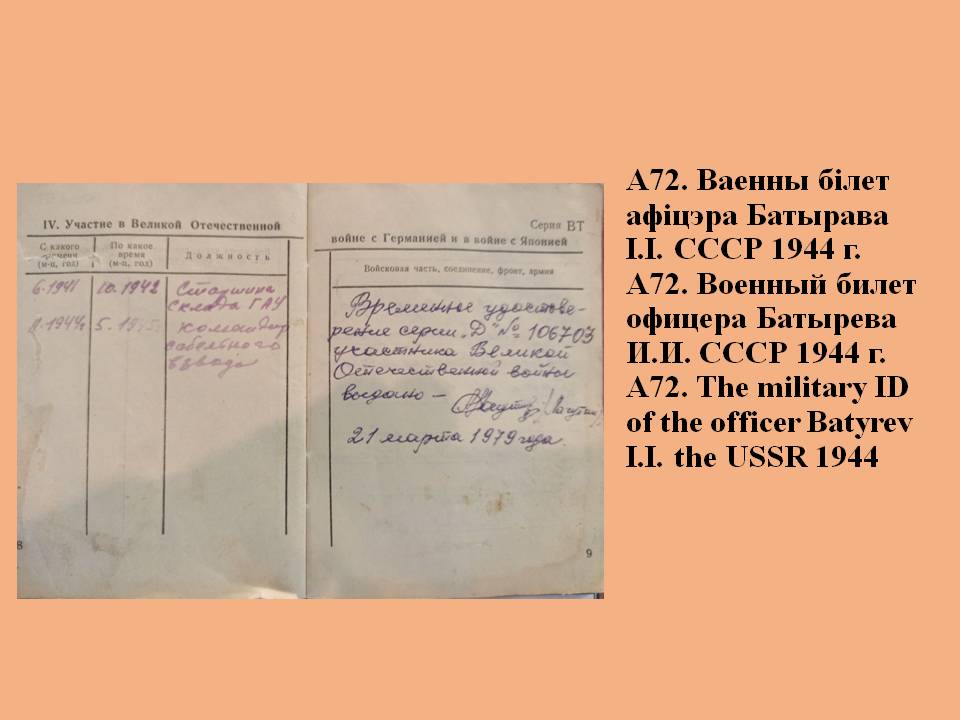 IV. Участие в Великой Отечественной
С какого времени (м-ц, год)
По какое время (м-ц, год)
Должность
6.1941 10.1942 Старшина
склада ГАУ
1944 5. командир
сабельного
взвода
8
Серия ВТ
войне с Германией и в войне с Японией
Войсковая часть, соединение, фронт, армия
Временное удостове-
рение серии „Д" № 106703
участника Великой
Отечественной войны
выдано –
21 марта 1979 года.
9
А72. Ваенны білет
афіцэра Батырава
І.І. СССР 1944 г.
А72. Военный билет
офицера Батырева
И.И. СССР 1944 г.
A72. The military ID
of the officer Batyrev
I.I. the USSR 1944